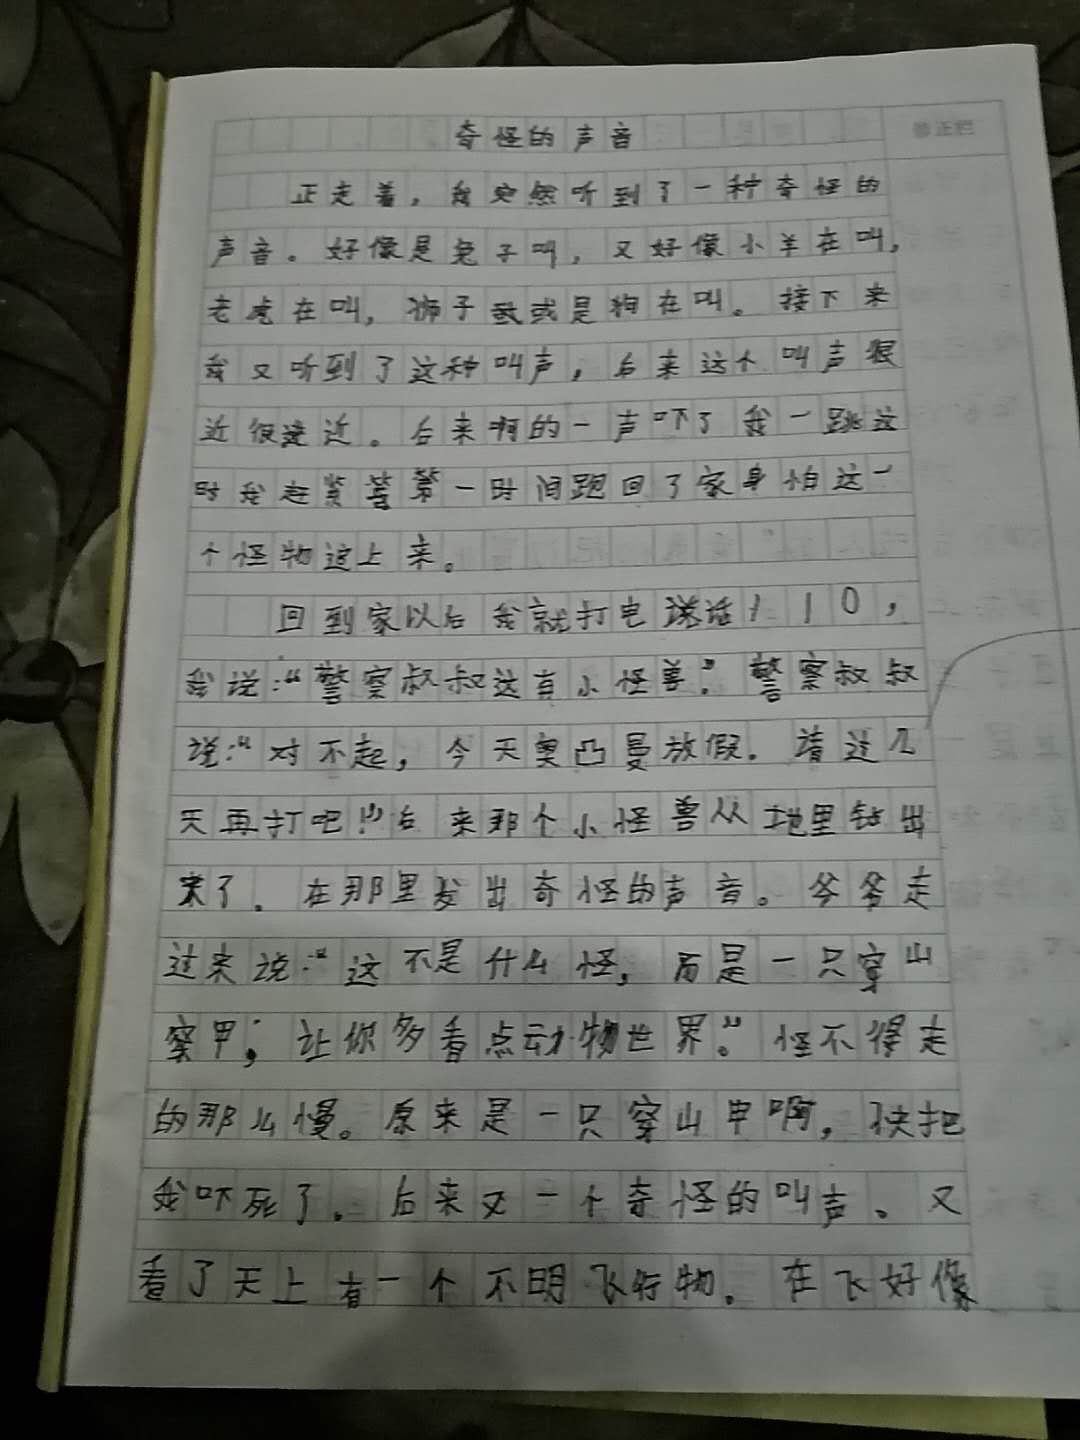 奇怪的声音
修正栏
正走着，我突然听到了一种奇怪的
声音。好像是兔子叫，又好像小羊在叫，
老虎在叫，狮子或是狗在叫。接下来
我又听到了这种叫声，后来这个叫声很
近很近。后来啊的一声吓了我一跳这
时我赶紧第一时间跑回了家身怕这一
个怪物追上来。
回到家以后我就打电话110，
我说：“警察叔叔这有小怪兽”。警察叔叔
说：“对不起，今天奥凸曼放假。请过几
天再打吧！”后来那个小怪兽从地里钻出
来了。在那里发出奇怪的声音。爷爷走
过来说：“这不是什么怪，而是一只穿山
甲，让你多看点动物世界。”怪不得走
的那么慢。原来是一只穿山甲啊，快把
我吓死了。后来又一个奇怪的叫声。又
看了天上有一个不明飞行物。在飞好像